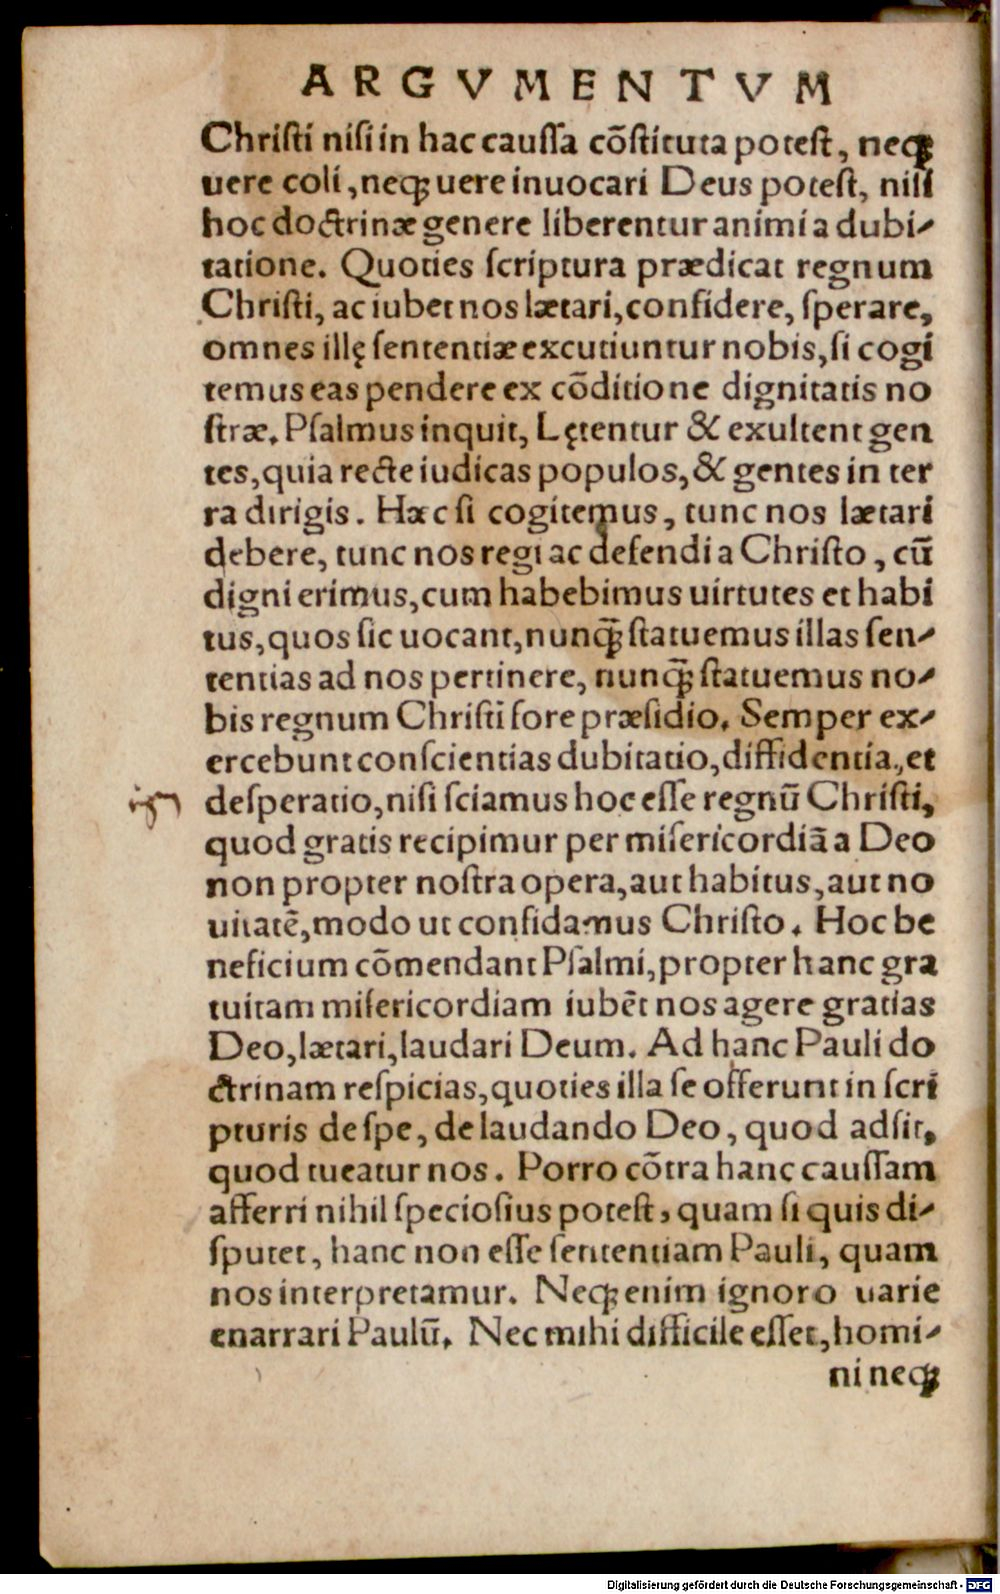 ARGVMENTVM
Christi nisi in hac caussa cōstituta potest, neqꝫ
uere coli, neqꝫ uere inuocari Deus potest, nisi
hoc doctrinæ genere liberentur animi a dubi-
tatione. Quoties scriptura prædicat regnum
Christi, ac iubet nos lætari, confidere, sperare,
omnes illę sententiæ excutiuntur nobis, si cogi
temus eas pendere ex cōditione dignitatis no
stræ. Psalmus inquit, Lętentur & exultent gen
tes, quia recte iudicas populos, & gentes in ter
ra dirigis. Hæc si cogitemus, tunc nos lætari
debere, tunc nos regi ac defendi a Christo, cū
digni erimus, cum habebimus uirtutes et habi
tus, quos sic uocant, nunq̄ꝫ statuemus illas sen-
tentias ad nos pertinere, nunq̄ꝫ statuemus no-
bis regnum Christi fore præsidio. Semper ex-
ercebunt conscientias dubitatio, diffidentia, et
desperatio, nisi sciamus hoc esse regnū Christi,
quod gratis recipimur per misericordiā a Deo
non propter nostra opera, aut habitus, aut no
uitatē, modo ut confidamus Christo. Hoc be
neficium cōmendant Psalmi, propter hanc gra
tuitam misericordiam iubēt nos agere gratias
Deo, lætari, laudari Deum. Ad hanc Pauli do
ctrinam respicias, quoties illa se offerunt in scri
pturis de spe, de laudando Deo, quod adsit,
quod tueatur nos. Porro cōtra hanc caussam
afferri nihil speciosius potest, quam si quis di-
sputet, hanc non esse sententiam Pauli, quam
nos interpretamur. Neqꝫ enim ignoro uarie
enarrari Paulū. Nec mihi difficile esset, homi-
ni neqꝫ
Digitalisierung gefördert durch die Deutsche Forschungsgemeinschaft - DFG